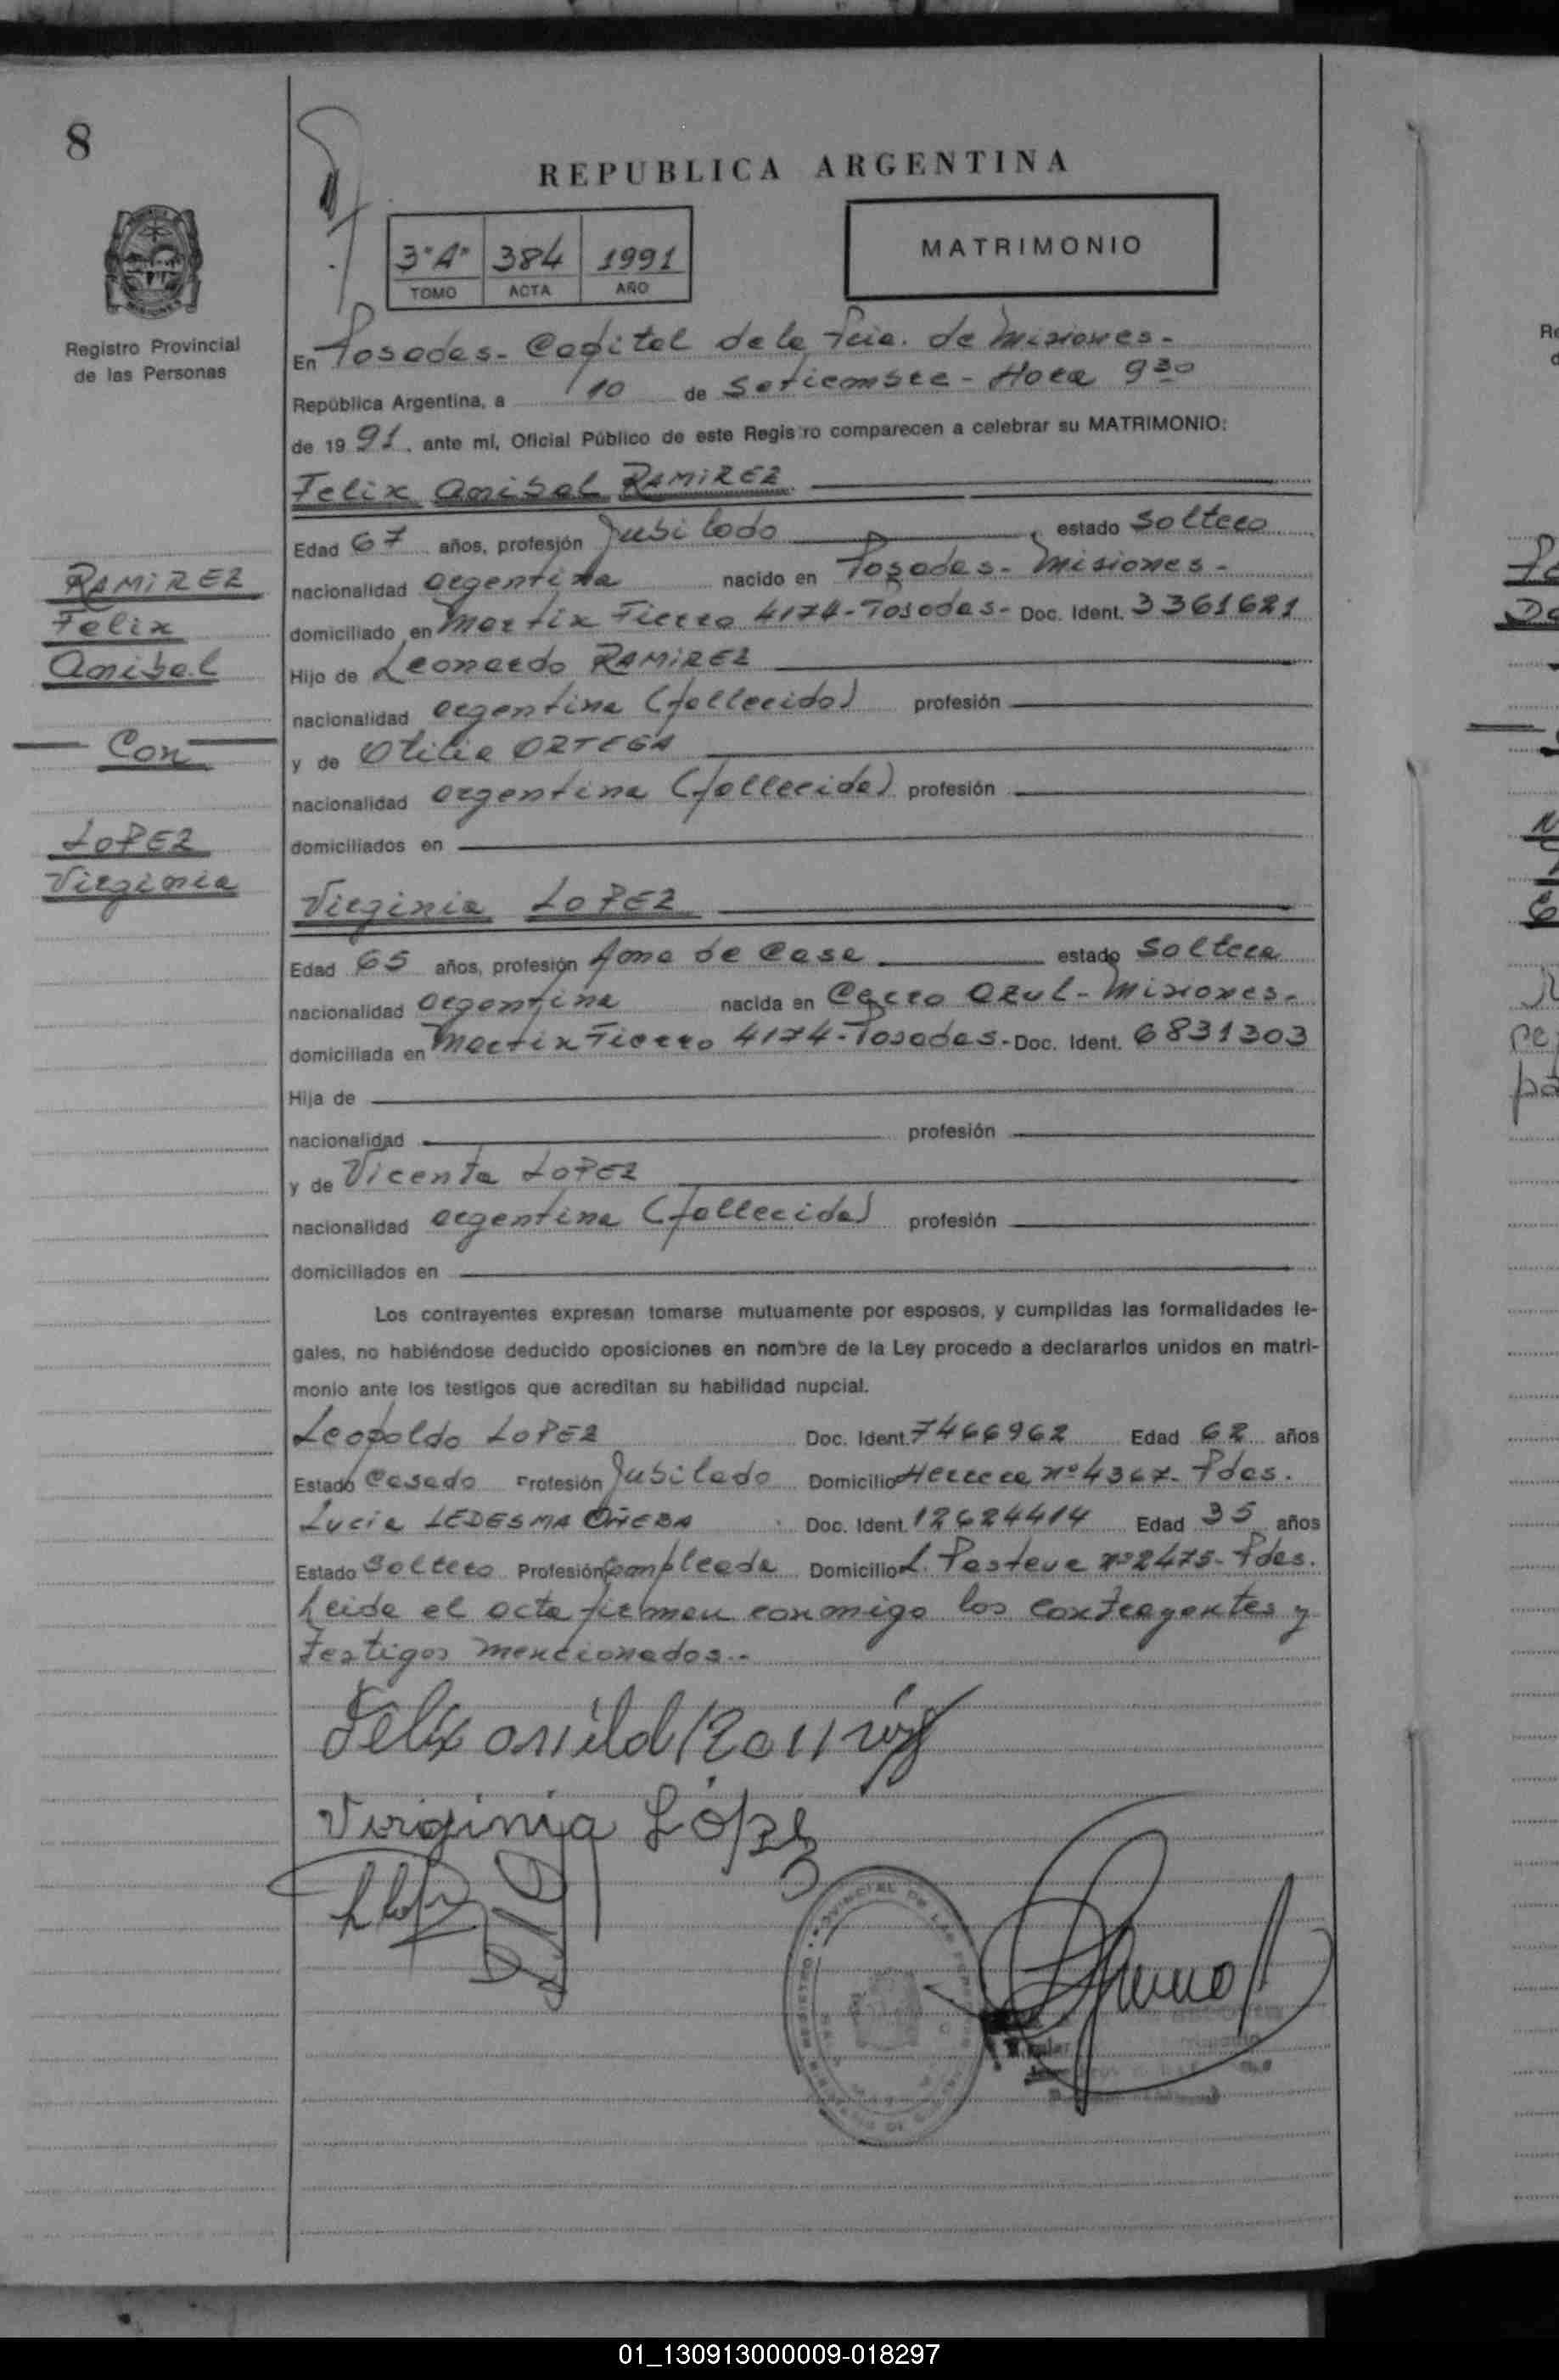 8
REPUBLICA ARGENTINA
3"A" 384 1991
TOMO ACTA AÑO
MATRIMONIO
Registro Provincial
de las Personas
En Posadas - Capital de la Pcia. de Misiones -
República Argentina, a 10 de Setiembre - Hora 9 30
de 19 91, ante mí, Oficial Público de este Registro comparecen a celebrar su MATRIMONIO:
Felix Anibal RAMIREZ
Edad 67 años, profesión Jubilado estado Soltero
nacionalidad argentina nacido en Posadas - Misiones -
domiciliado en Martin Fierro 4174 - Posadas - Doc. Ident. 3361621
Hijo de Leonardo RAMIREZ
nacionalidad argentina (fallecido) profesión
y de Otilia ORTEGA
nacionalidad argentina (fallecida) profesión
domiciliados en
RAMIREZ
Felix
Anibal
Con
LOPEZ
Virginia
Virginia LOPEZ
Edad 65 años, profesión Ama de Casa estado Soltera
nacionalidad argentina nacida en Cerro Azul - Misiones -
domiciliada en Martin Fierro 4174 - Posadas - Doc. Ident. 6831303
Hija de
nacionalidad profesión
y de Vicenta LOPEZ
nacionalidad argentina (fallecida) profesión
domiciliados en
Los contrayentes expresan tomarse mutuamente por esposos, y cumplidas las formalidades le-
gales, no habiéndose deducido oposiciones en nombre de la Ley procedo a declararlos unidos en matri-
monio ante los testigos que acreditan su habilidad nupcial.
Leopoldo LOPEZ Doc. Ident. 7466962 Edad 62 años
Estado Casado Profesión Jubilado Domicilio Herrera nº 4367 - Pdas.
Lucia LEDESMA Doc. Ident. 12624414 Edad 35 años
Estado Soltera Profesión empleada Domicilio L. Pasteur nº 2475 - Pdas.
Leida el acta firman conmigo los contrayentes y
testigos mencionados. -
Felix Anibal Ramirez
Virginia López
01_130913000009-018297